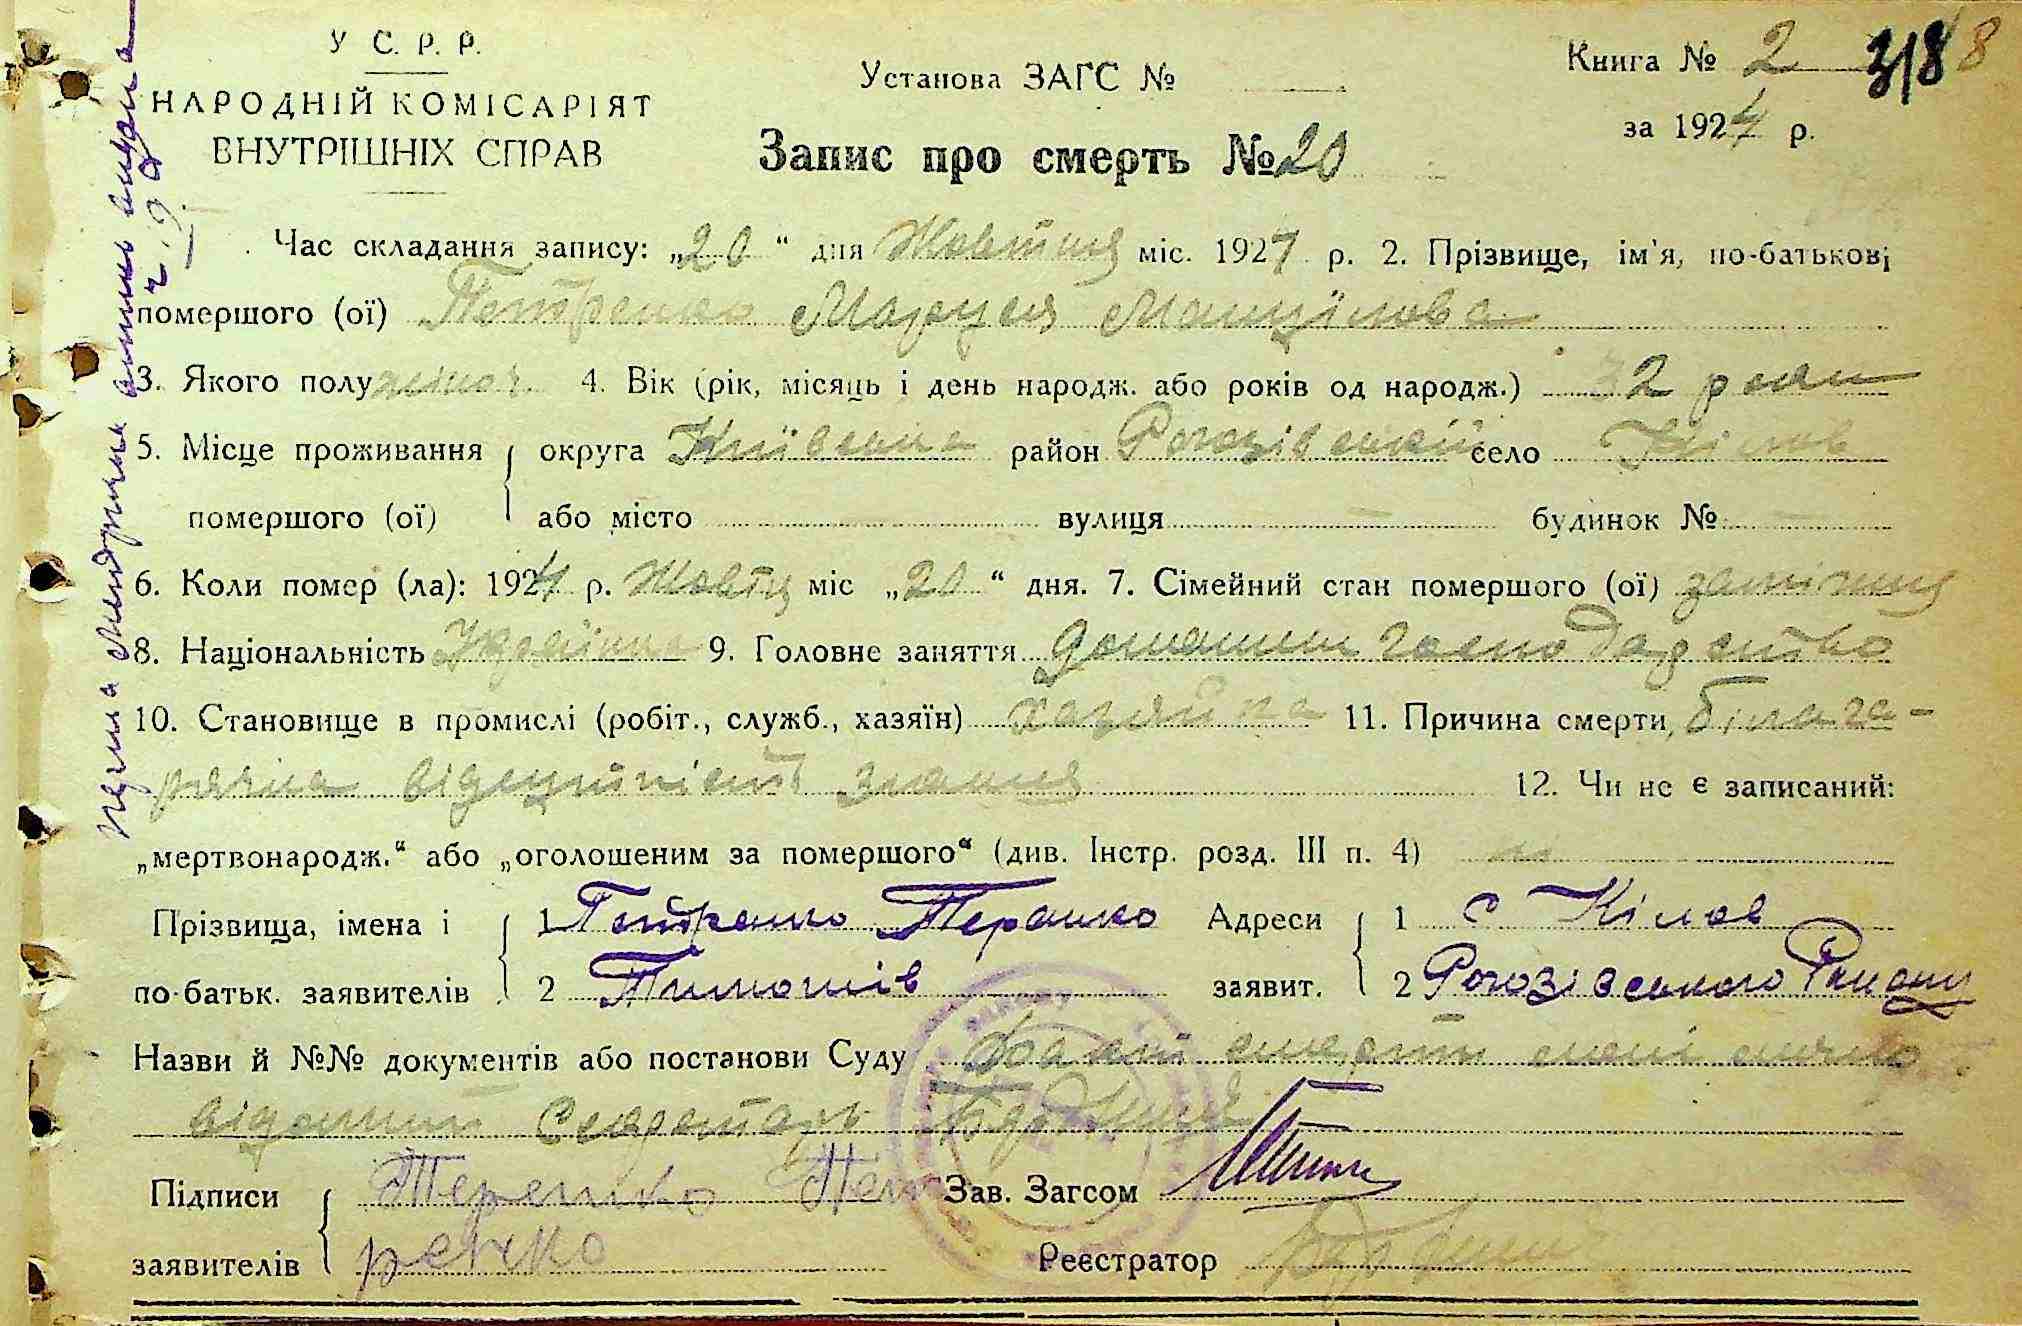 У С. Р. Р.
НАРОДНІЙ КОМІСАРІЯТ
ВНУТРІШНІХ СПРАВ
Установа ЗАГС №
Запис про смерть № 20
Книга № 2 318 8
за 1927 р.
Час складання запису: „20“ дня Жовтня міс. 1927 р. 2. Прізвище, ім'я, по-батькові
помершого (ої) Петренко Маруся
3. Якого полу жіноч. 4. Вік (рік, місяць і день народж. або років од народж.) 32 роки
5. Місце проживання { округа Київська район Рогозівський село Кілов
помершого (ої) або місто вулиця будинок №
6. Коли помер (ла): 1927 р. Жовтня міс „20“ дня. 7. Сімейний стан помершого (ої) замужня
8. Національність Українка 9. Головне заняття домашнє господарство
10. Становище в промислі (робіт., служб., хазяїн) хазяйка 11. Причина смерти, біла га-
рячка
12. Чи не є записаний:
„мертвонародж.“ або „оголошеним за помершого“ (див. Інстр. розд. III п. 4) ні
Прізвища, імена і { 1 Петренко Терешко Адреси { 1 с Кілов
по-батьк. заявителів 2 Тимошів заявит. 2 Рогозівського Району
Назви й №№ документів або постанови Суду Факт смерти мені
відомий Секретарь
Підписи { Терешко Пет Зав. Загсом
заявителів ренко Реєстратор